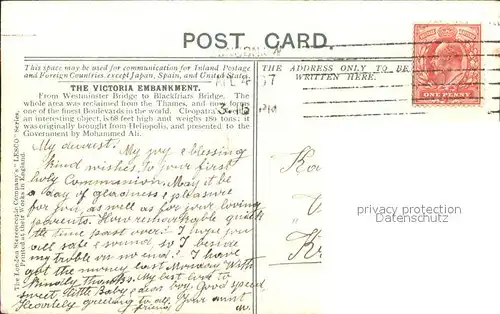 POST CARD.
This space may be used for communication for Inland Postage
and Foreign Countries, except Japan, Spain, and United States.
THE ADDRESS ONLY TO BE
WRITTEN HERE.
THE VICTORIA EMBANKMENT.
From Westminster Bridge to Blackfriars Bridge. The
whole area was reclaimed from the Thames, and now forms
one of the finest Boulevards in the world. Cleopatra's
an interesting object, is 68 feet high and weighs 180 tons; it
was originally brought from Heliopolis, and presented to the
Government by Mohammed Ali.
My dearest. My joy & blessing
kind wishes, to your first
holy Communion. May it be
a day of gladness & pleasure
for you, as well as for your loving
parents. How remarkable quick
the time past over! I hope you
all safe & sound so I beside
my trouble on no end! I have
got the money last Monday with
kindly thanks. My best love to
sweet little Baby & dear boy. Good speed
Heavenly greeting to all, Your aunt
friend
The London Stereoscopic Company's "LESCO" series.
Printed at their Works in England.
ONE PENNY
passion-postkarten.de